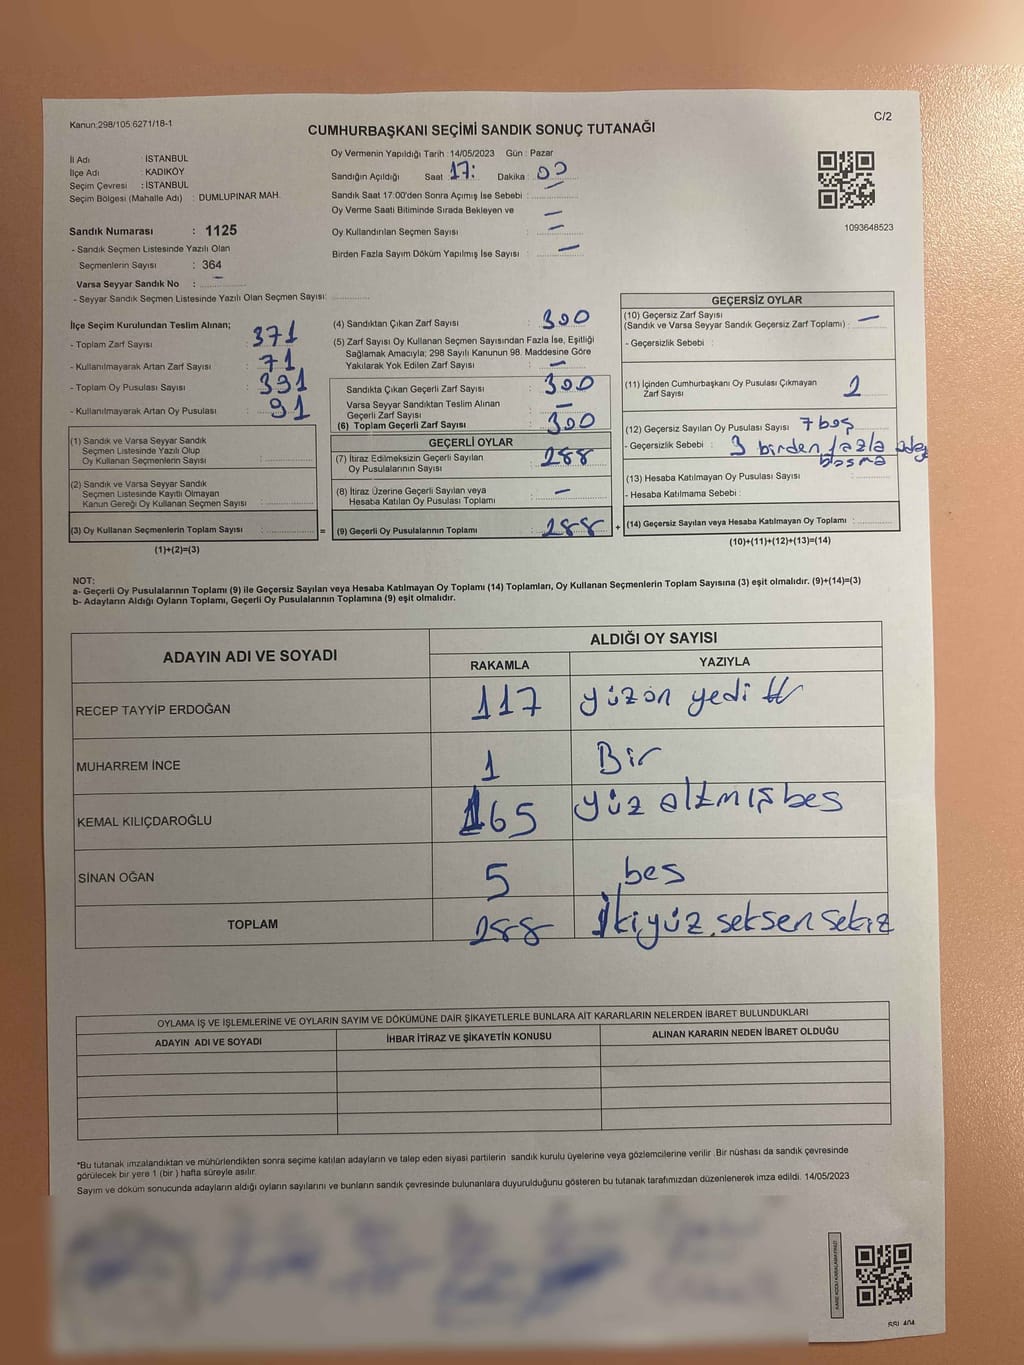 Kanun:298/105 6271/18-1
C/2
CUMHURBAŞKANI SEÇİMİ SANDIK SONUÇ TUTANAĞI
İl Adı : İSTANBUL
İlçe Adı : KADIKÖY
Seçim Çevresi : İSTANBUL
Seçim Bölgesi (Mahalle Adı) : DUMLUPINAR MAH.
Sandık Numarası : 1125
- Sandık Seçmen Listesinde Yazılı Olan
Seçmenlerin Sayısı : 364
Varsa Seyyar Sandık No : –
- Seyyar Sandık Seçmen Listesinde Yazılı Olan Seçmen Sayısı:
Oy Vermenin Yapıldığı Tarih : 14/05/2023 Gün : Pazar
Sandığın Açıldığı Saat 17: Dakika : 00
Sandık Saat 17:00'den Sonra Açımış İse Sebebi : –
Oy Verme Saati Bitiminde Sırada Bekleyen ve –
Oy Kullandırılan Seçmen Sayısı : –
Birden Fazla Sayım Döküm Yapılmış İse Sayısı : –
1093648523
İlçe Seçim Kurulundan Teslim Alınan;
- Toplam Zarf Sayısı : 371
- Kullanılmayarak Artan Zarf Sayısı : 71
- Toplam Oy Pusulası Sayısı : 391
- Kullanılmayarak Artan Oy Pusulası : 91
(1) Sandık ve Varsa Seyyar Sandık
Seçmen Listesinde Yazılı Olup
Oy Kullanan Seçmenlerin Sayısı :
(2) Sandık ve Varsa Seyyar Sandık
Seçmen Listesinde Kayıtlı Olmayan
Kanun Gereği Oy Kullanan Seçmen Sayısı :
(3) Oy Kullanan Seçmenlerin Toplam Sayısı : =
(1)+(2)=(3)
(4) Sandıktan Çıkan Zarf Sayısı : 300
(5) Zarf Sayısı Oy Kullanan Seçmen Sayısından Fazla İse, Eşitliği
Sağlamak Amacıyla; 298 Sayılı Kanunun 98. Maddesine Göre
Yakılarak Yok Edilen Zarf Sayısı : –
Sandıkta Çıkan Geçerli Zarf Sayısı : 300
Varsa Seyyar Sandıktan Teslim Alınan
Geçerli Zarf Sayısı : –
(6) Toplam Geçerli Zarf Sayısı : 300
GEÇERLİ OYLAR
(7) İtiraz Edilmeksizin Geçerli Sayılan
Oy Pusulalarının Sayısı : 288
(8) İtiraz Üzerine Geçerli Sayılan veya
Hesaba Katılan Oy Pusulası Toplamı : –
(9) Geçerli Oy Pusulalarının Toplamı : 288 +
GEÇERSİZ OYLAR
(10) Geçersiz Zarf Sayısı
(Sandık ve Varsa Seyyar Sandık Geçersiz Zarf Toplamı) : –
- Geçersizlik Sebebi :
(11) İçinden Cumhurbaşkanı Oy Pusulası Çıkmayan
Zarf Sayısı : 2
(12) Geçersiz Sayılan Oy Pusulası Sayısı : 7 boş
- Geçersizlik Sebebi : 3 birden fazla
basma
(13) Hesaba Katılmayan Oy Pusulası Sayısı :
- Hesaba Katılmama Sebebi :
(14) Geçersiz Sayılan veya Hesaba Katılmayan Oy Toplamı :
(10)+(11)+(12)+(13)=(14)
NOT:
a- Geçerli Oy Pusulalarının Toplamı (9) ile Geçersiz Sayılan veya Hesaba Katılmayan Oy Toplamı (14) Toplamları, Oy Kullanan Seçmenlerin Toplam Sayısına (3) eşit olmalıdır. (9)+(14)=(3)
b- Adayların Aldığı Oyların Toplamı, Geçerli Oy Pusulalarının Toplamına (9) eşit olmalıdır.
ADAYIN ADI VE SOYADI
ALDIĞI OY SAYISI
RAKAMLA YAZIYLA
RECEP TAYYİP ERDOĞAN 117 yüzon yedi
MUHARREM İNCE 1 Bir
KEMAL KILIÇDAROĞLU 165 yüz altmış bes
SİNAN OĞAN 5 bes
TOPLAM 288 İkiyüz seksen sekiz
OYLAMA İŞ VE İŞLEMLERİNE VE OYLARIN SAYIM VE DÖKÜMÜNE DAİR ŞİKAYETLERLE BUNLARA AİT KARARLARIN NELERDEN İBARET BULUNDUKLARI
ADAYIN ADI VE SOYADI İHBAR İTİRAZ VE ŞİKAYETİN KONUSU ALINAN KARARIN NEDEN İBARET OLDUĞU
*Bu tutanak imzalandıktan ve mühürlendikten sonra seçime katılan adayların ve talep eden siyasi partilerin sandık kurulu üyelerine veya gözlemcilerine verilir .Bir nüshası da sandık çevresinde
görülecek bir yere 1 (bir ) hafta süreyle asılır.
Sayım ve döküm sonucunda adayların aldığı oyların sayılarını ve bunların sandık çevresinde bulunanlara duyurulduğunu gösteren bu tutanak tarafımızdan düzenlenerek imza edildi. 14/05/2023